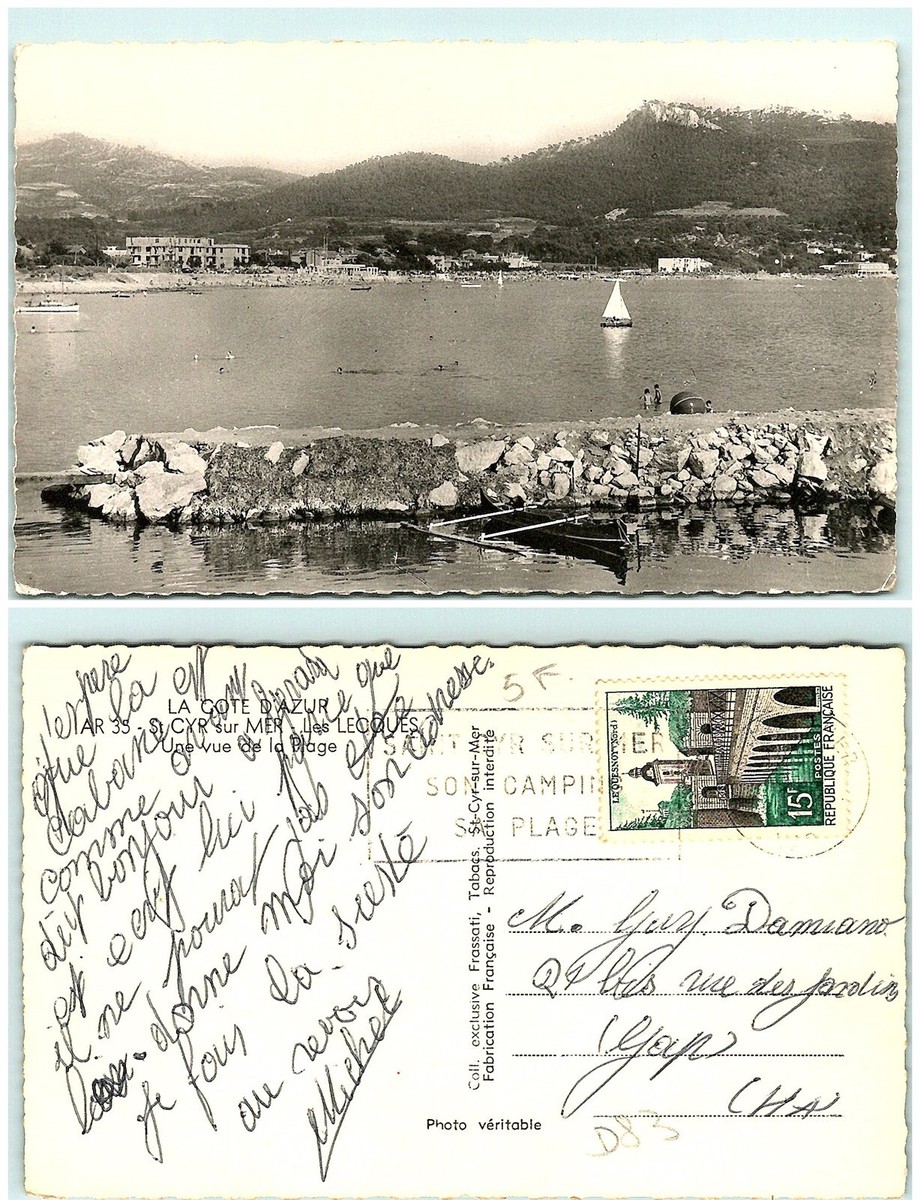 J'espère
que la
cabane est
comme avant
dit bonjour a
et ecrit lui
il ne pourrat pas être
donne moi son adresse.
Je fous la
au revoir
Michel
LA COTE D'AZUR
AR 35 - St CYR sur MER - Les LECQUES
Une vue de la Plage
5 F.
SAINT CYR SUR MER
SON CAMPIN
SA PLAGE
LE QUESNOY (Nord)
15F
POSTES
REPUBLIQUE FRANÇAISE
Coll. exclusive Frassati, Tabacs, St-Cyr-sur-Mer
Fabrication Française - Reproduction interdite
M. Guy Damiano
bis rue des jardins
(Gap)
(HA)
D83
Photo véritable